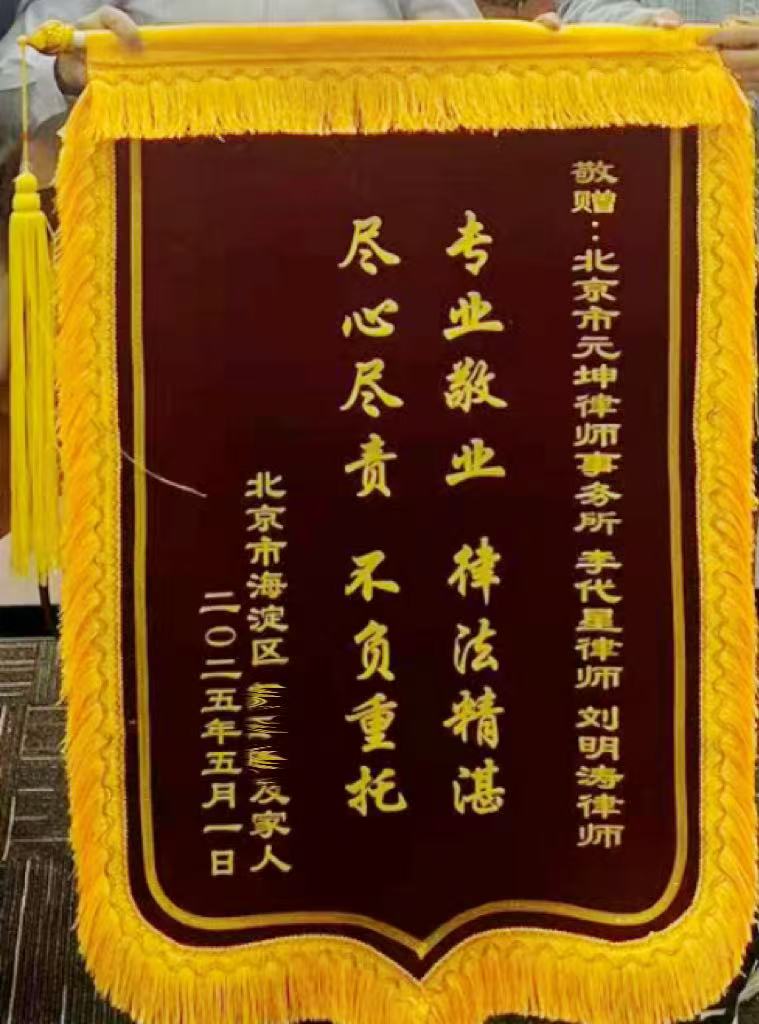 敬赠：北京市元坤律师事务所 李代星律师 刘明涛律师
专业敬业 律法精湛
尽心尽责 不负重托
北京市海淀区 及家人
二〇二五年五月一日